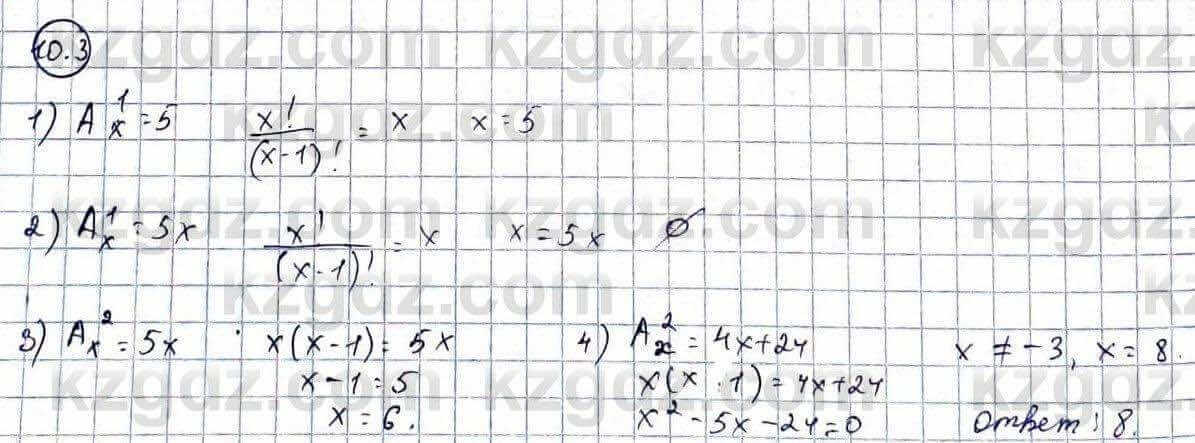 10.3
1) A_x^1 = 5   x!/(x-1)! = x   x = 5
2) A_x^1 = 5x   x!/(x-1)! = x   x = 5x   ∅
3) A_x^2 = 5x   x(x-1) = 5x
x-1 = 5
x = 6.
4) A_x^2 = 4x+24
x(x-1) = 4x+24
x^2 - 5x - 24 = 0
x ≠ -3, x = 8.
Ответ: 8.
kzgdz.com